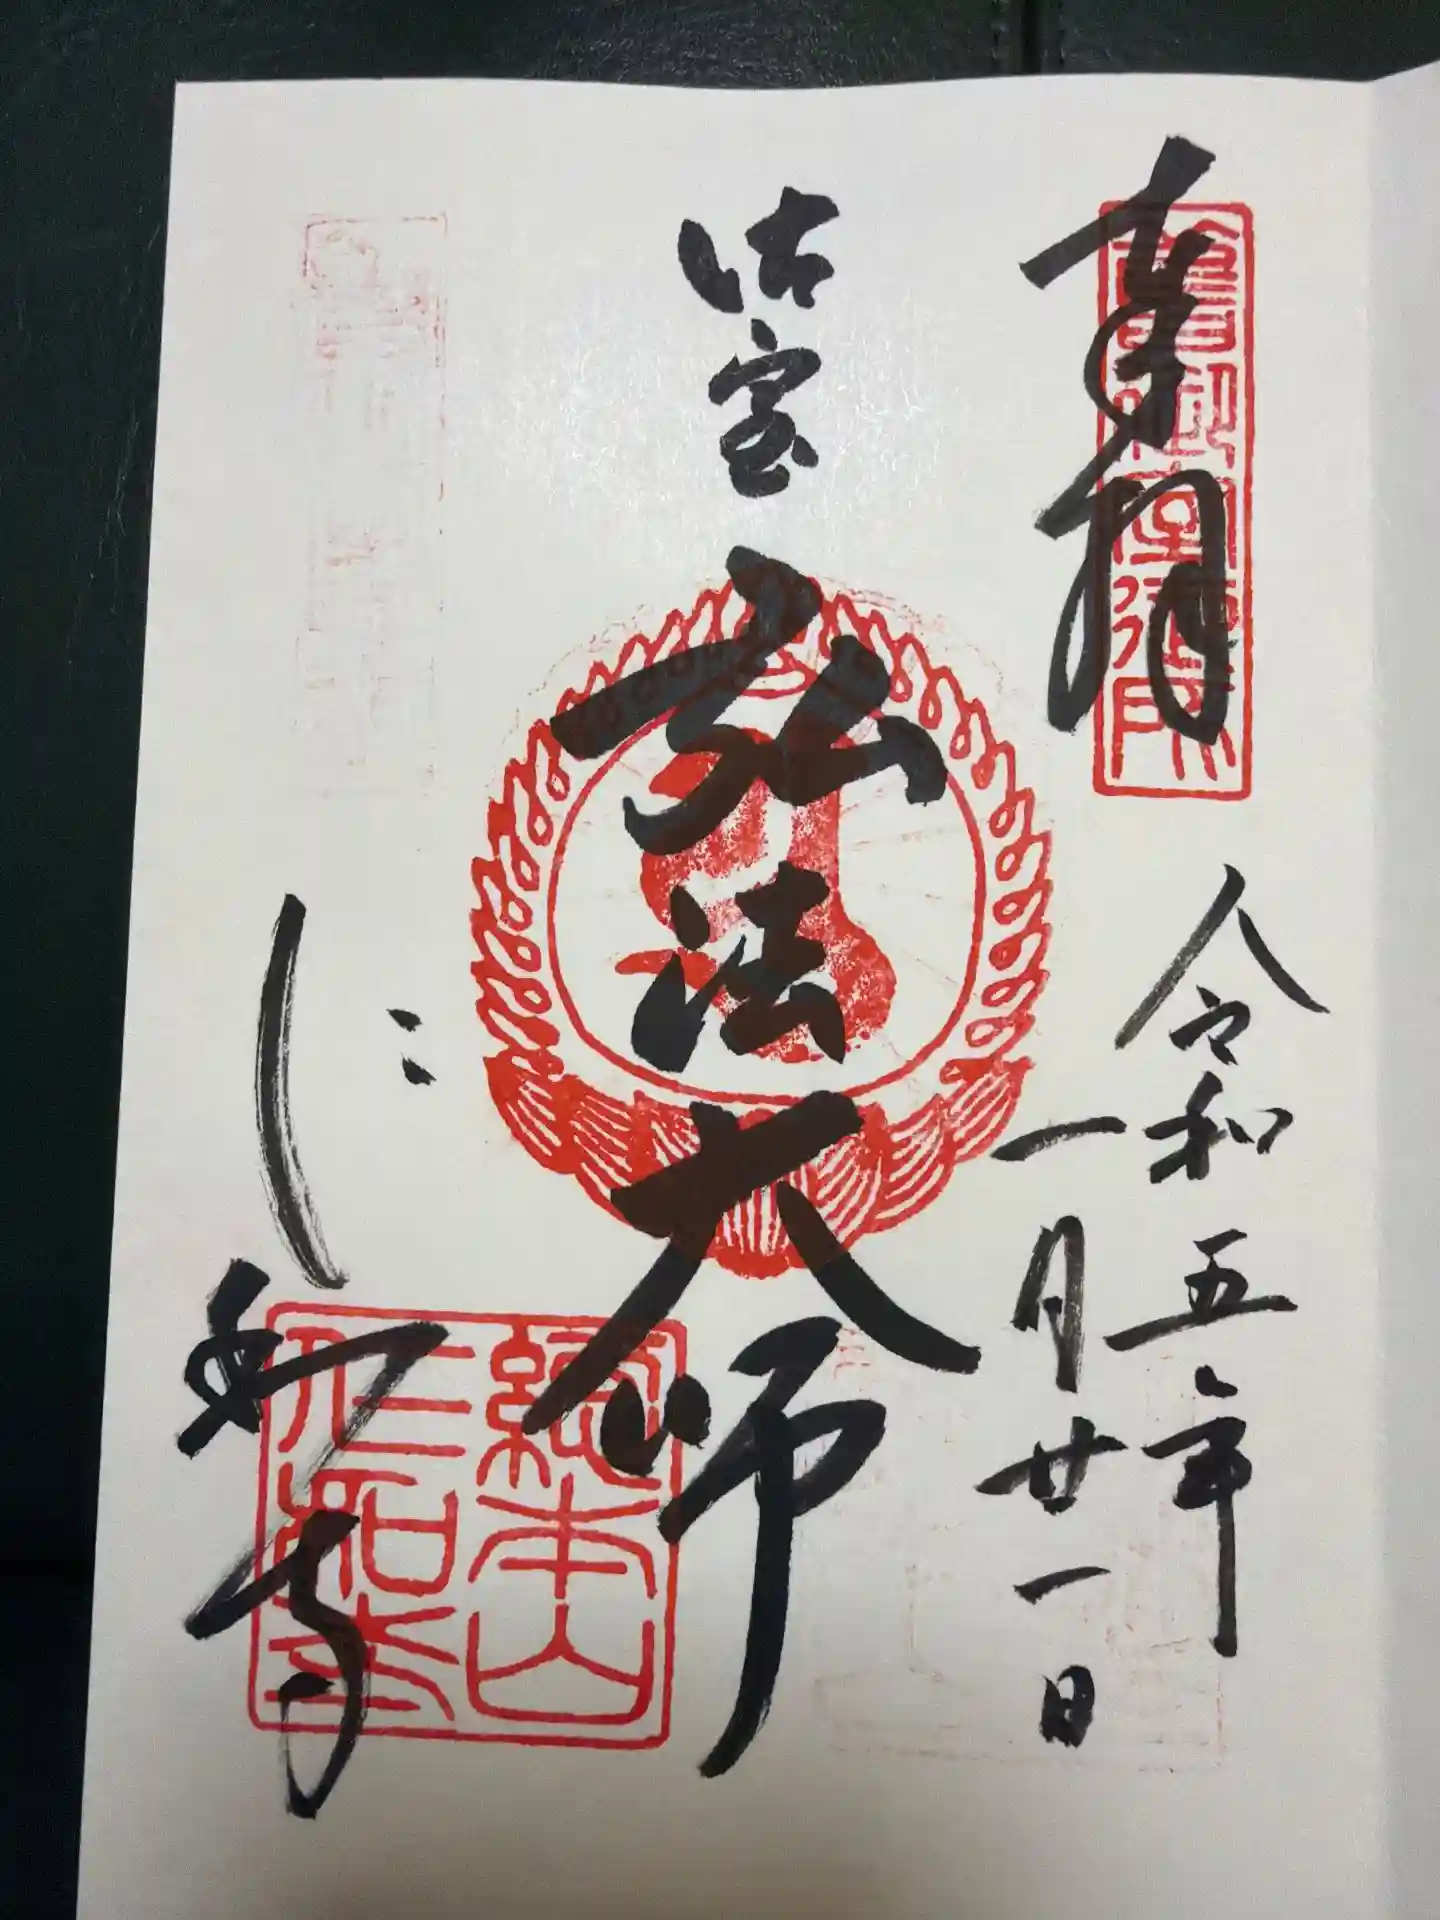 奉拝
舊御室御所
令和五年
一月廿一日
御室
弘法大師
仁和寺
總本山
仁和寺